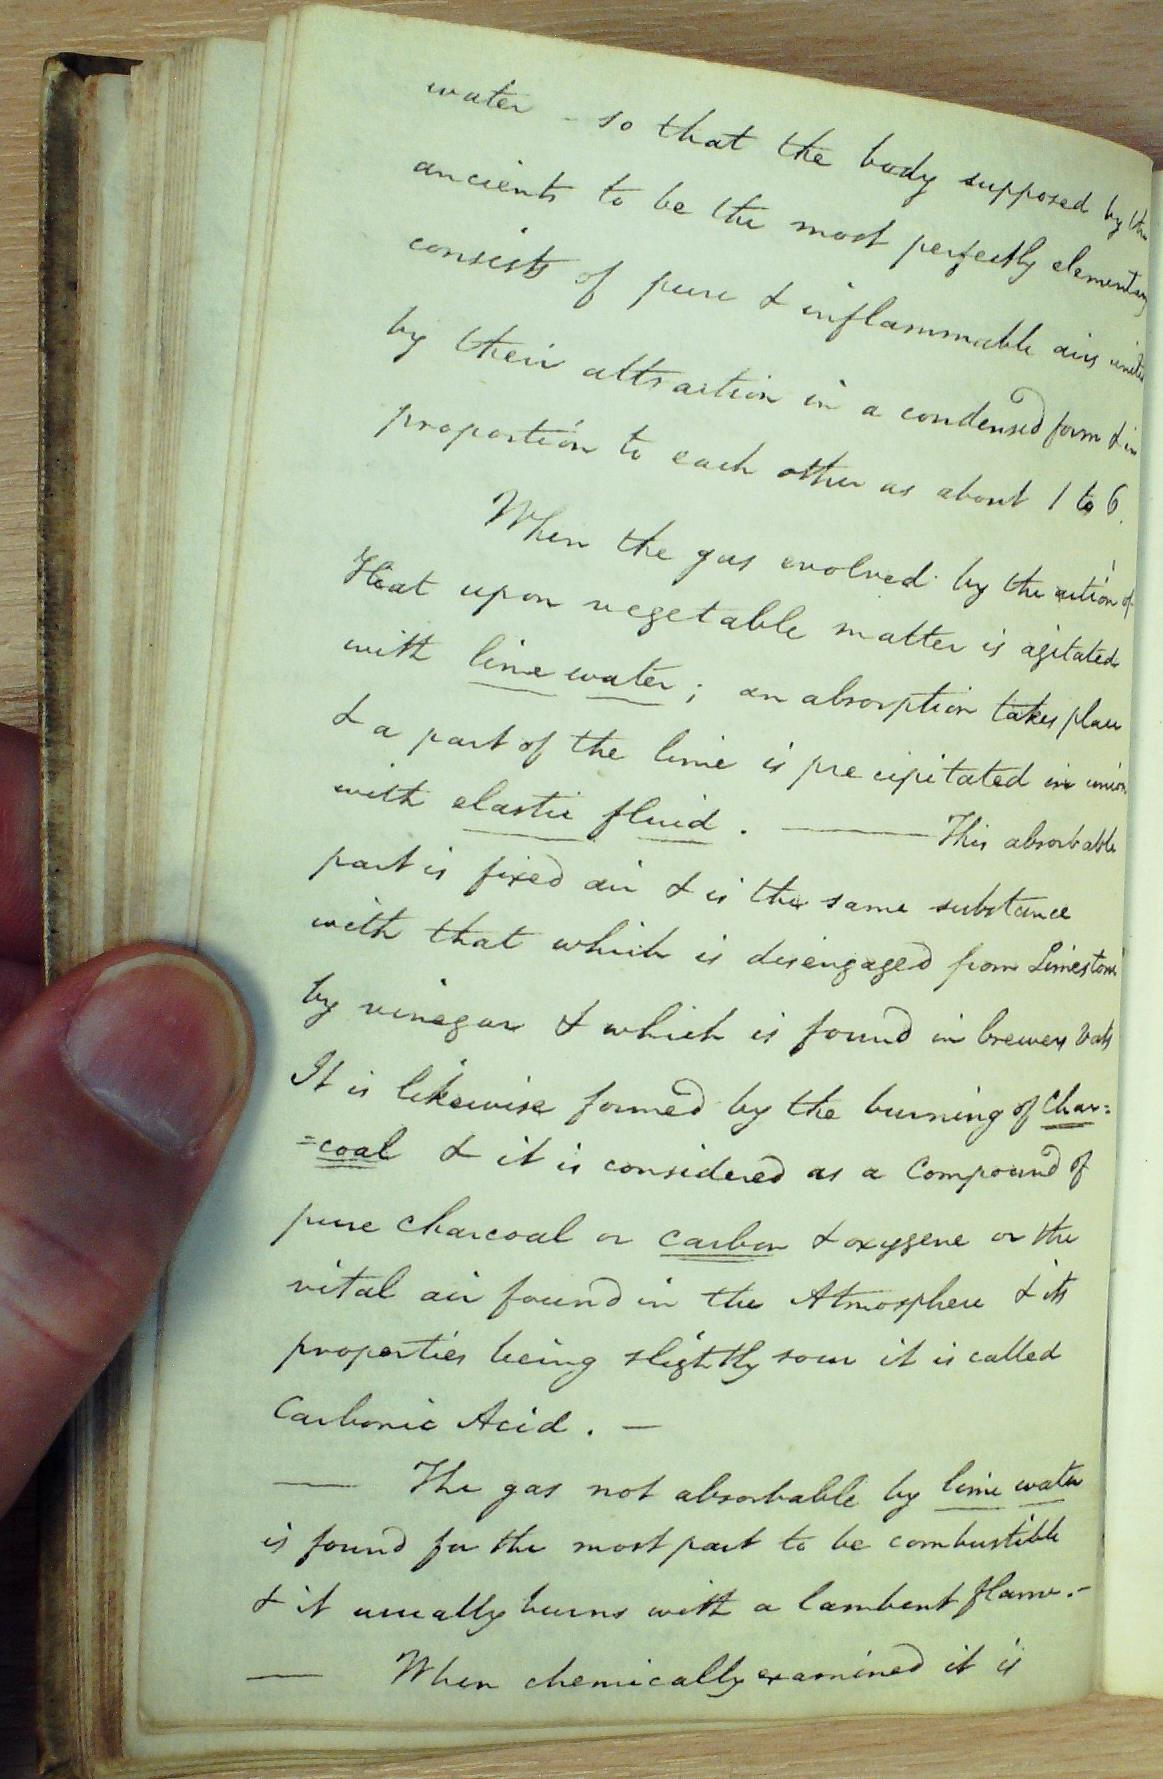 water - so that the body supposed by the
ancients to be the most perfectly elementary
consists of pure & inflammable airs united
by their attraction in a condensed form & in
proportion to each other as about 1 to 6.
When the gas evolved by the action of
Heat upon vegetable matter is agitated
with lime water; an absorption takes place
& a part of the lime is precipitated in union
with elastic fluid. — This absorbable
part is fixed air & is the same substance
with that which is disengaged from Limestone
by vinegar & which is found in brewers Vats
It is likewise formed by the burning of char=
=coal & it is considered as a Compound of
pure charcoal or carbon & oxygene or the
vital air found in the Atmosphere & its
properties being slightly sour it is called
Carbonic Acid. —
— The gas not absorbable by lime water
is found for the most part to be combustible
& it usually burns with a lambent flame. -
— When chemically examined it is